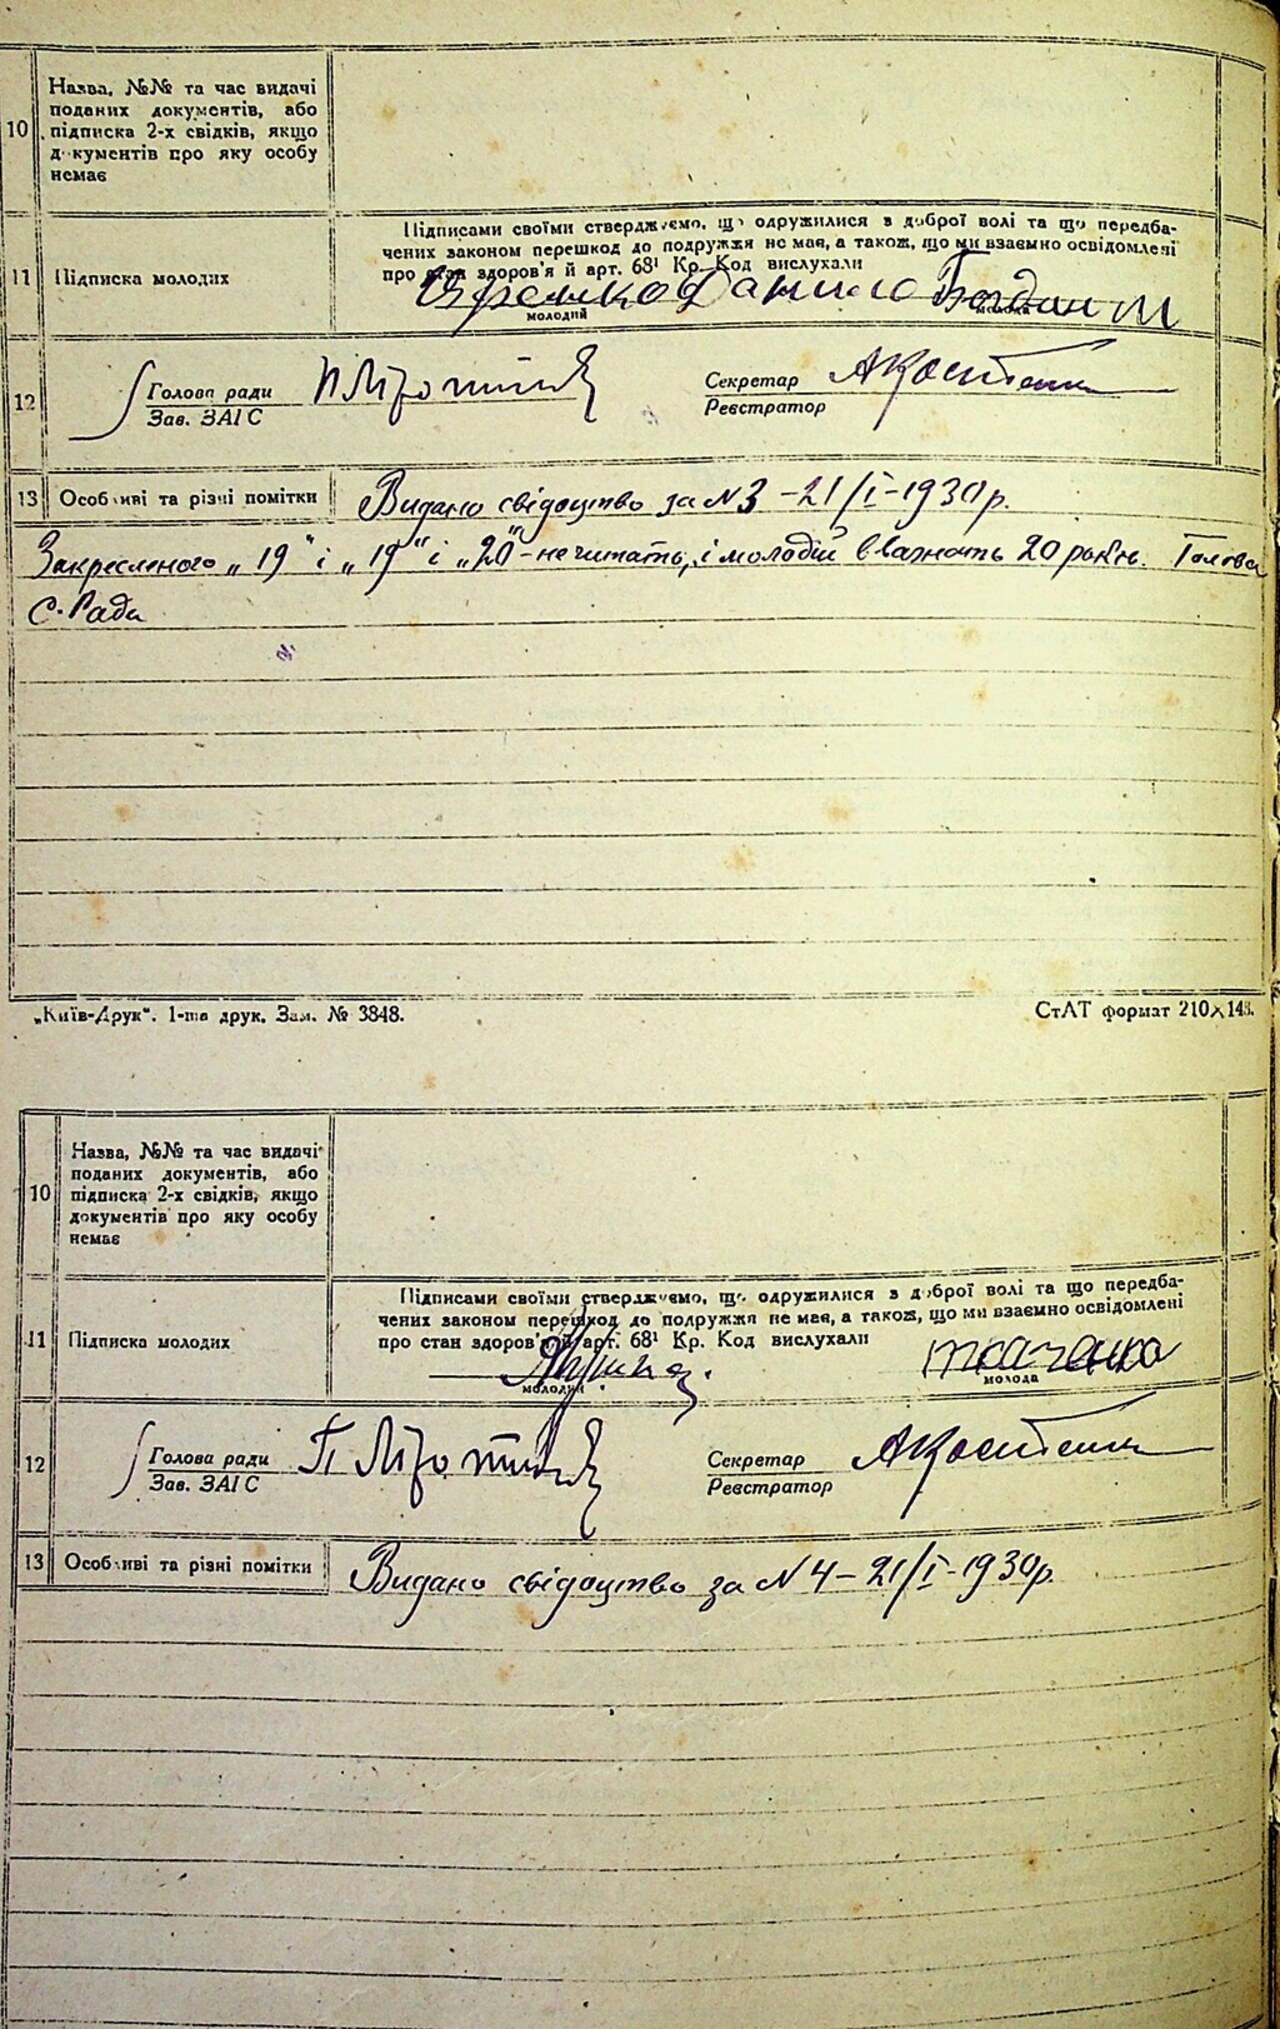 10
Назва, №№ та час видачі
поданих документів, або
підписка 2-х свідків, якщо
документів про яку особу
немає
11
Підписка молодих
Підписами своїми стверджуємо, що одружилися з доброї волі та що передба-
чених законом перешкод до подружжя не має, а також, що ми взаємно освідомлені
про стан здоров'я й арт. 68¹ Кр. Код вислухали
Яремко Данило Богдан М
молодий
молода
12
Голова ради
Зав. ЗАГС
Секретар АКостенко
Реєстратор
13
Особливі та різні помітки
Видано свідоцтво за N 3 - 21/I - 1930 р.
Закресленого „19" і „19" і „20" - не читать, і молодій 20 років. Голова
С. Ради
„Київ-Друк". 1-ша друк. Зам. № 3848.
СтАТ формат 210×148.
10
Назва, №№ та час видачі
поданих документів, або
підписка 2-х свідків, якщо
документів про яку особу
немає
11
Підписка молодих
Підписами своїми стверджуємо, що одружилися з доброї волі та що передба-
чених законом перешкод до подружжя не має, а також, що ми взаємно освідомлені
про стан здоров'я й арт. 68¹ Кр. Код вислухали
ткаченко
молодий
молода
12
Голова ради
Зав. ЗАГС
Секретар АКостенко
Реєстратор
13
Особливі та різні помітки
Видано свідоцтво за N 4 - 21/I - 1930 р.